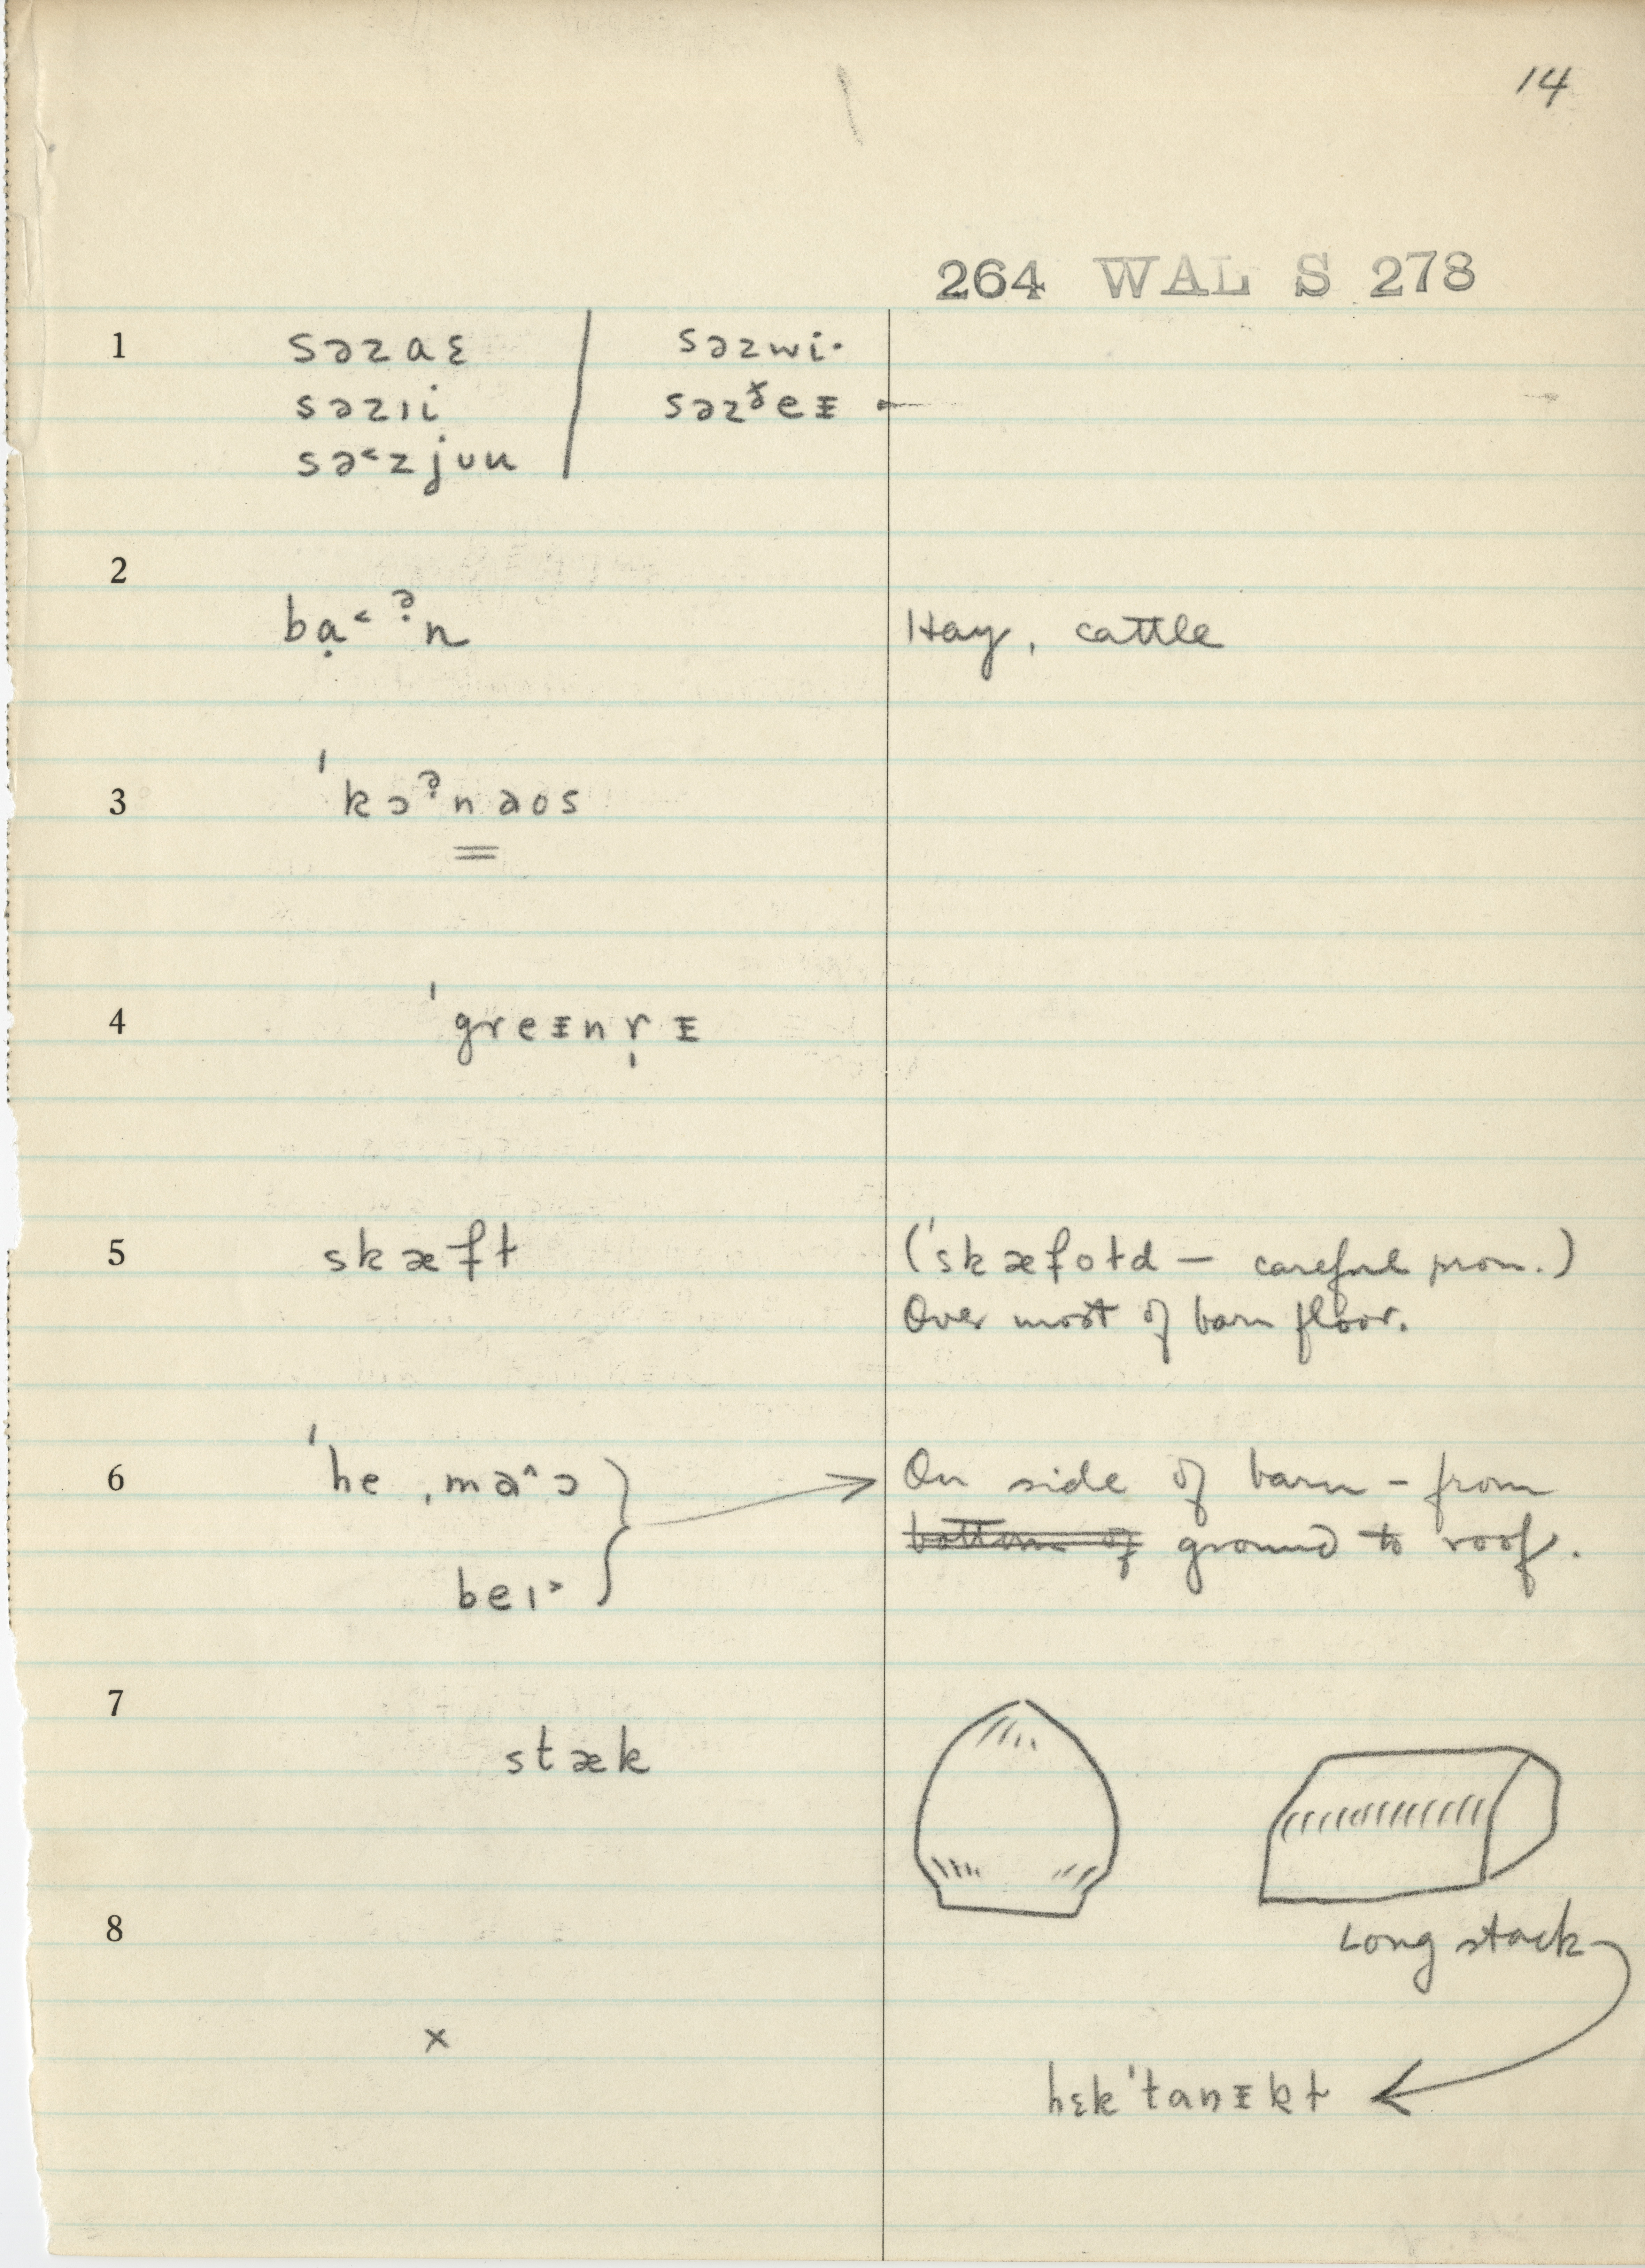 14
264 WAL S 278
1 səzaɛ səzwi·
səzɪi səzɤ̌eᵻ
sə˂zjʊu
2
bạ˂ ˀn Hay, cattle
3 ˈkɔˀnaos
4 ˈgreᵻnr̩ᵻ
5 skæɫt (ˈskæfoɫd — careful pron.)
Over most of barn floor.
6 ˈhe ˌma˄ɔ On side of barn – from
bottom of ground to roof.
beɪ˃
7
stæk
8 Long stack
×
hɛkˈtanᵻkɫ